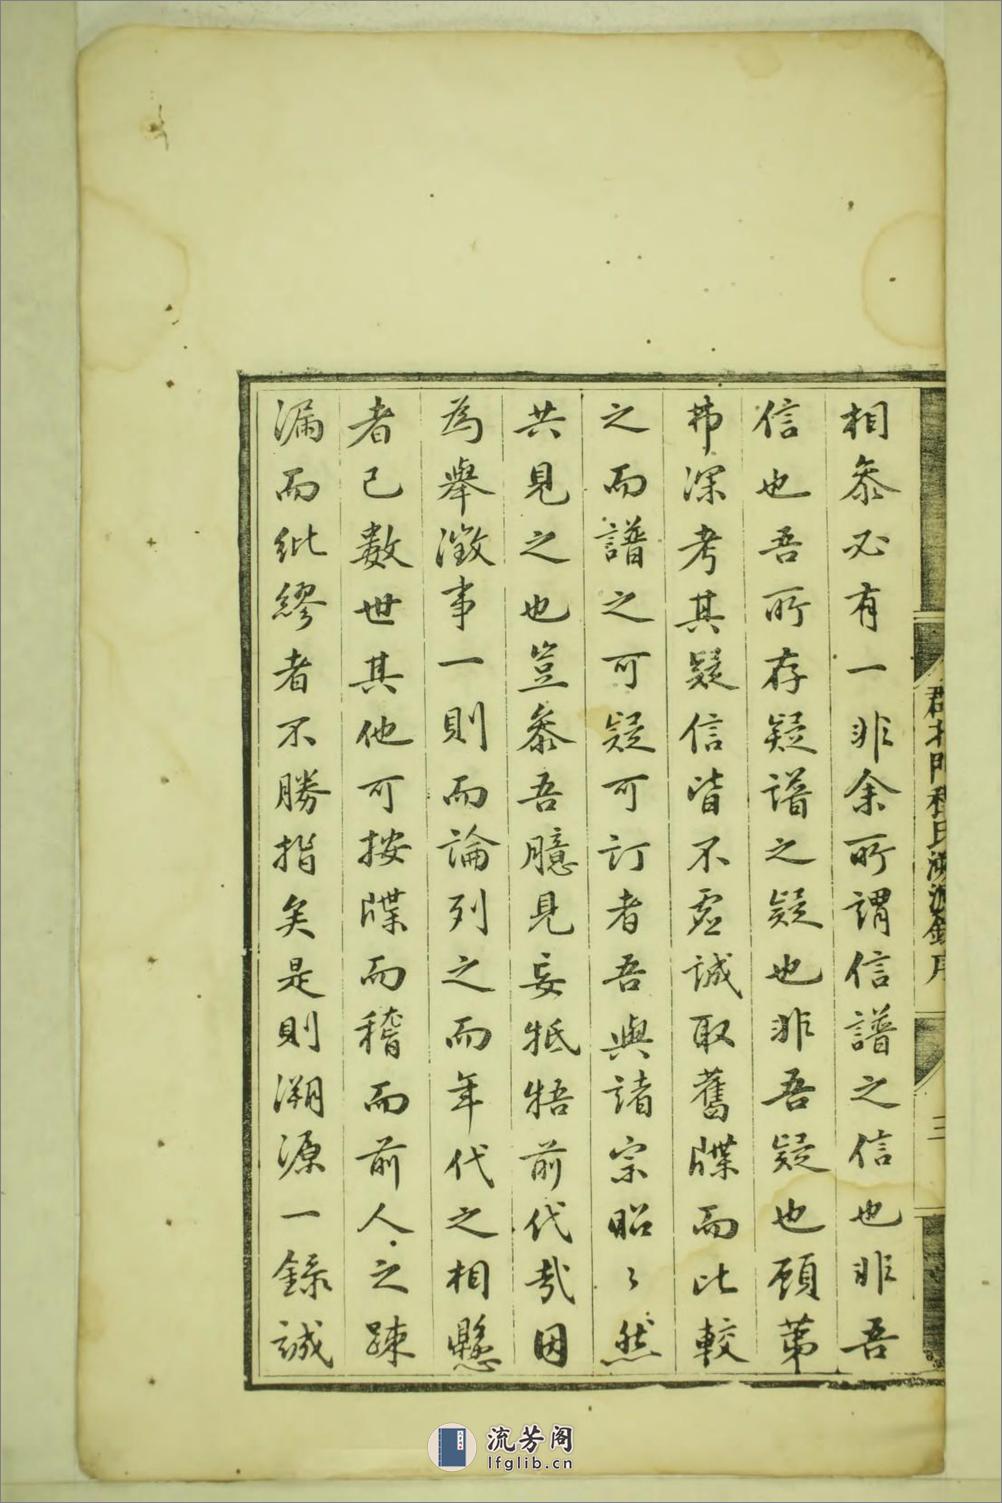 相叅必有一非余所謂信譜之信也非吾
信也吾所存疑譜之疑也非吾疑也顧第
弗深考其疑信皆不虛誠取舊牒而比較
之而譜之可疑可訂者吾與諸宗昭〻然
共見之也豈叅吾臆見妄牴牾前代哉因
為舉澂事一則而論列之而年代之相懸
者已數世其他可按牒而稽而前人之疎
漏而紕繆者不勝指矣是則溯源一錄誠
郡 門程氏溯源錄序
三
流芳阁
lfglib.cn